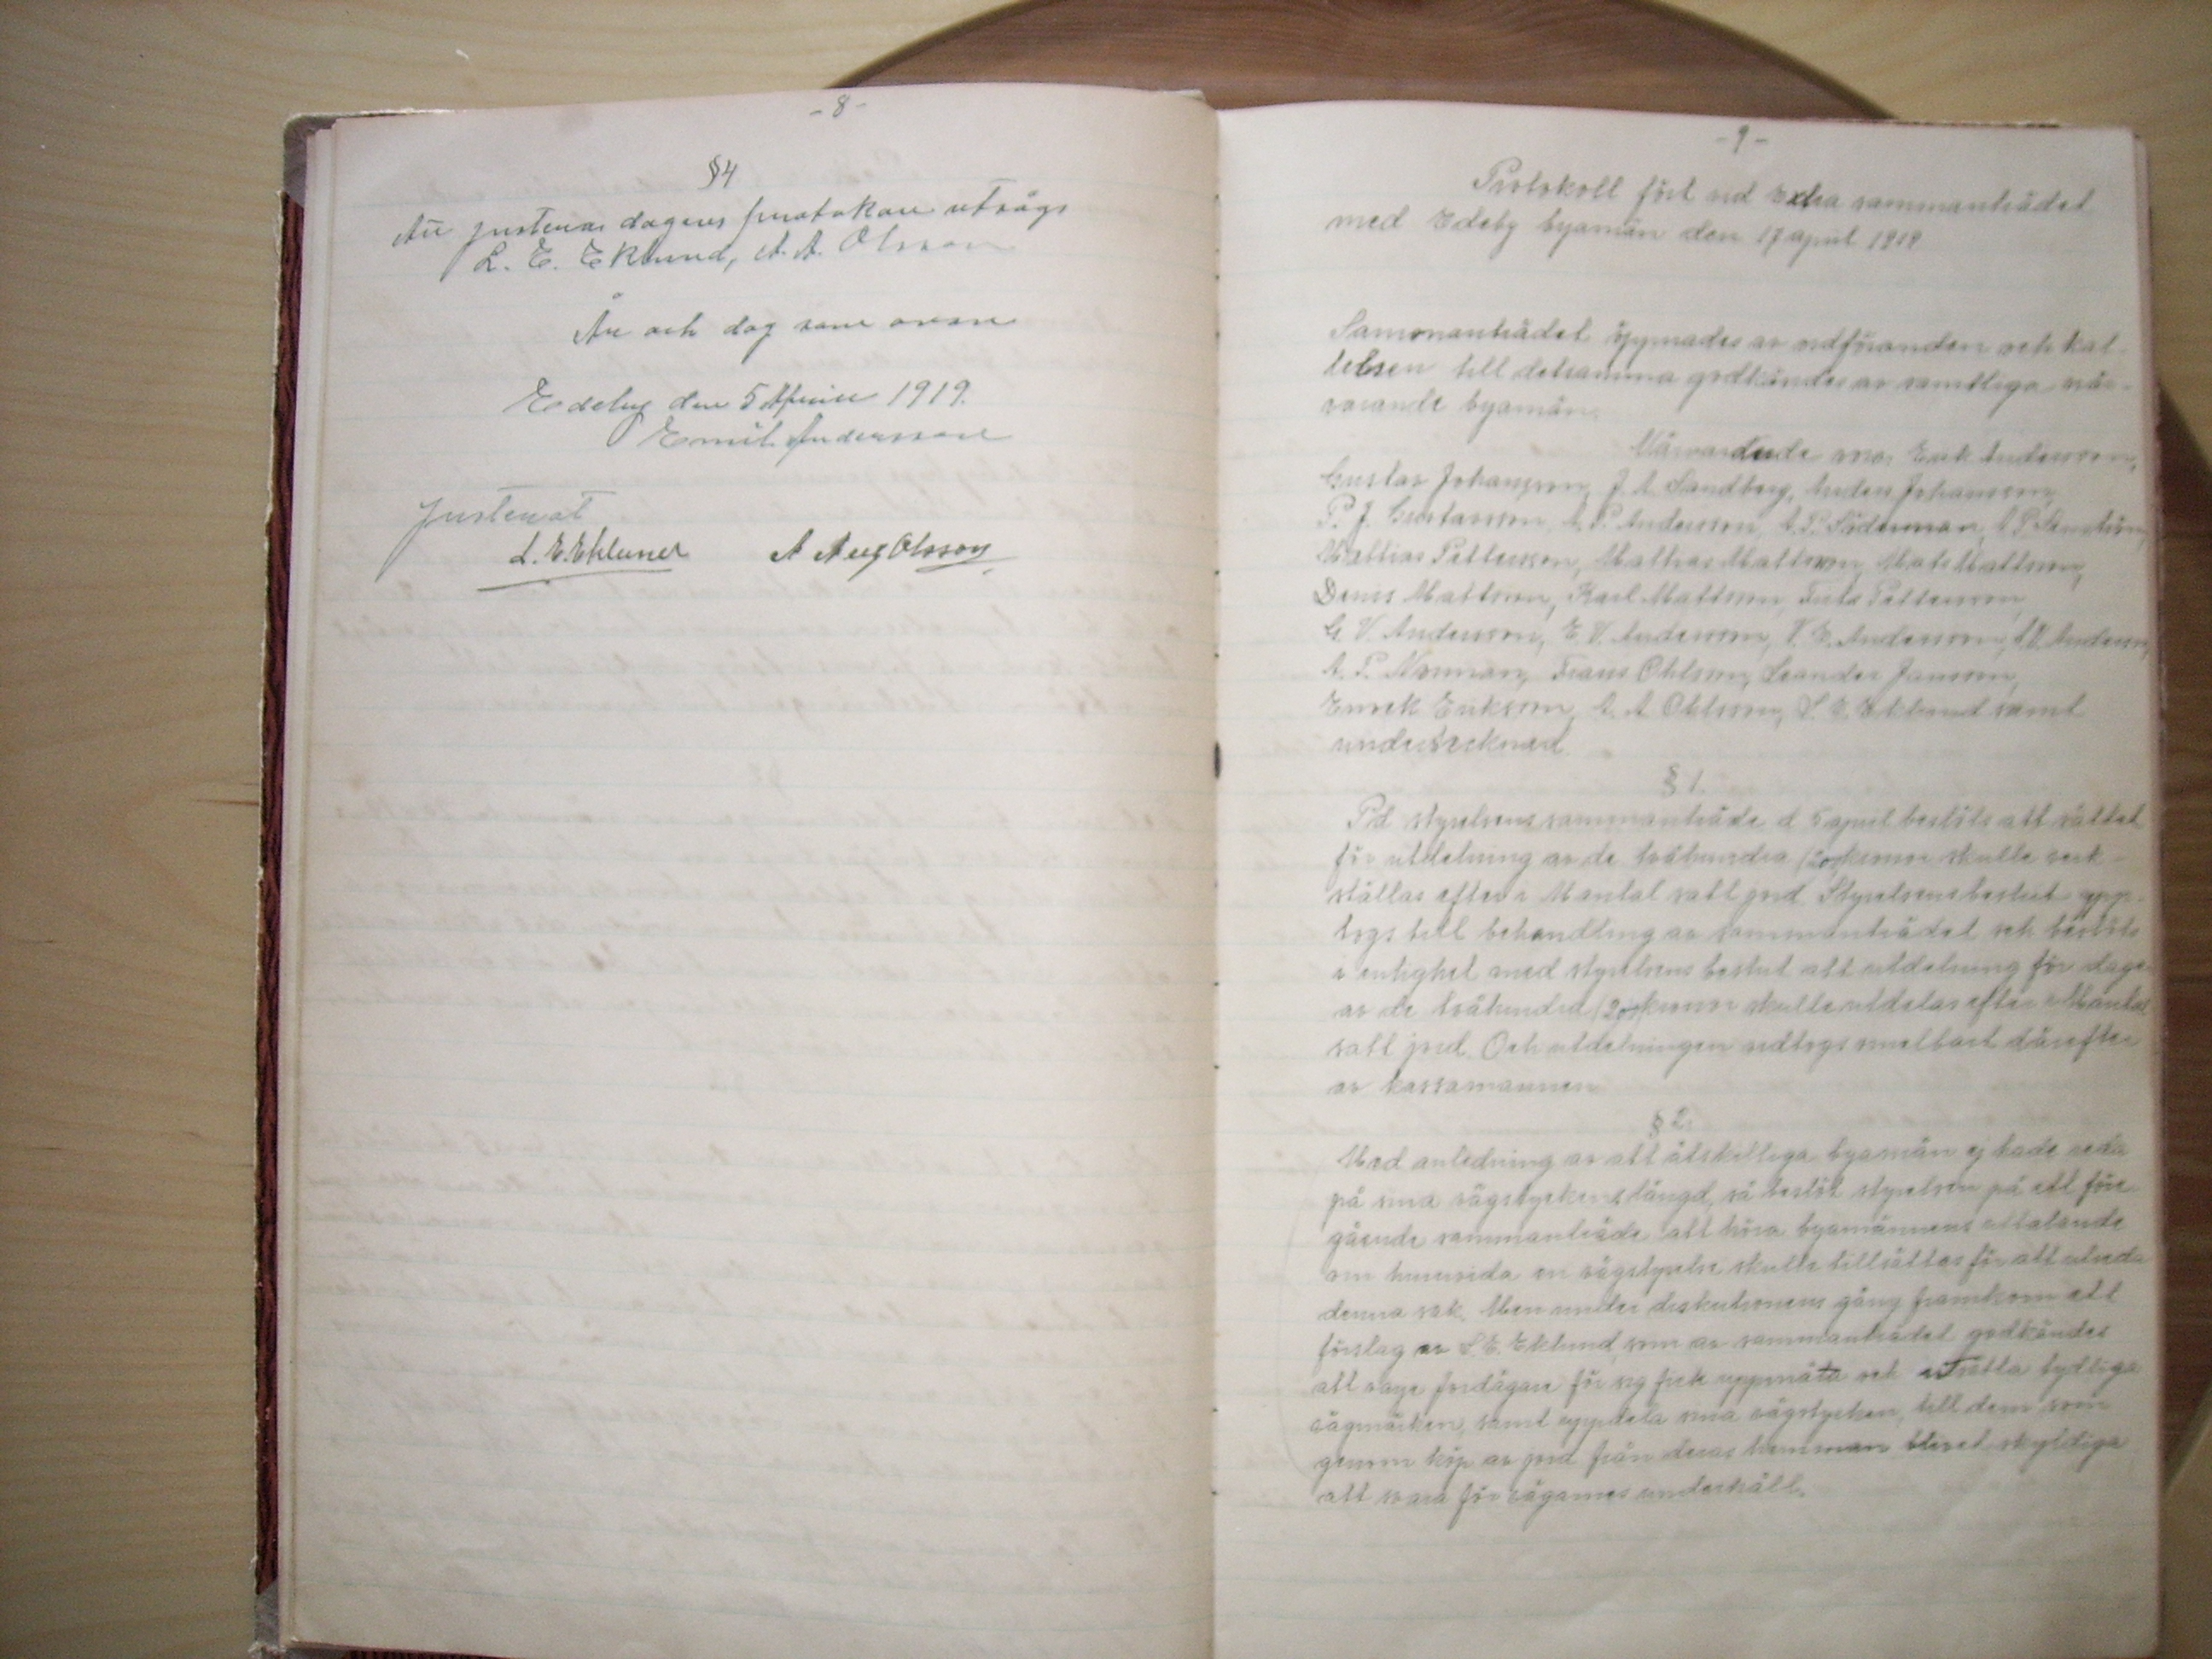 - 8 -
§4
Att justera dagens protokoll utsågs
L. E. Eklund, A. A. Olsson
År och dag som ovan
Edeby den 5 April 1919.
Emil Andersson
Justerat
L. E. Eklund A Aug Olsson
- 9 -
Protokoll fört vid Extra sammanträdet
med Edeby byamän den 17 april 1919
Sammanträdet öppnades av ordföranden och kal-
lelsen till detsamma godkändes av samtliga när-
varande byamän.
Närvarande voro Erik Andersson,
Gustav Johansson, J. A. Sandberg, Anders Johansson,
P. J. Gustavsson, A. P. Andersson, A. P. Söderman, A P
Mathias Pettersson, Mathias Mattsson, Mats Mattsson,
Denis Mattsson, Karl Mattsson, Pettersson,
G. V. Andersson, E. V. Andersson, V. E. Andersson, A V. Andersson,
A. P. Norman, Frans Ohlsson, Leander Jansson,
Enock Eriksson, A. A. Ohlsson, L. E. Eklund samt
undertecknad.
§ 1.
På styrelsens sammanträde d 5 april beslöts att sättet
för utdelning av de tvåhundra (200) kronor skulle verk-
ställas efter i Mantal satt jord. Styrelsens beslut upp-
togs till behandling av sammanträdet och beslöts
i enlighet med styrelsens beslut att utdelning för dagen
av de tvåhundra (200) kronor skulle utdelas efter i Mantal
satt jord. Och utdelningen vidtogs omelbart därefter
av kassamannen
§ 2.
Med anledning av att åtskilliga byamän ej hade reda
på sina vägstyckens längd, så beslöt styrelsen på ett före-
gående sammanträde att höra byamännens uttalande
om huruvida en vägstyrelse skulle tillsättas för att utreda
denna sak. Men under diskutionens gång framkom ett
förslag av L. E. Eklund som av sammanträdet godkändes
att varje jordägare för sig fick uppmäta och utsätta tydliga
vägmärken, samt uppdela sina vägstycken, till dem som
genom köp av jord från deras hemman blivet skyldiga
att svara för vägarnes underhåll.